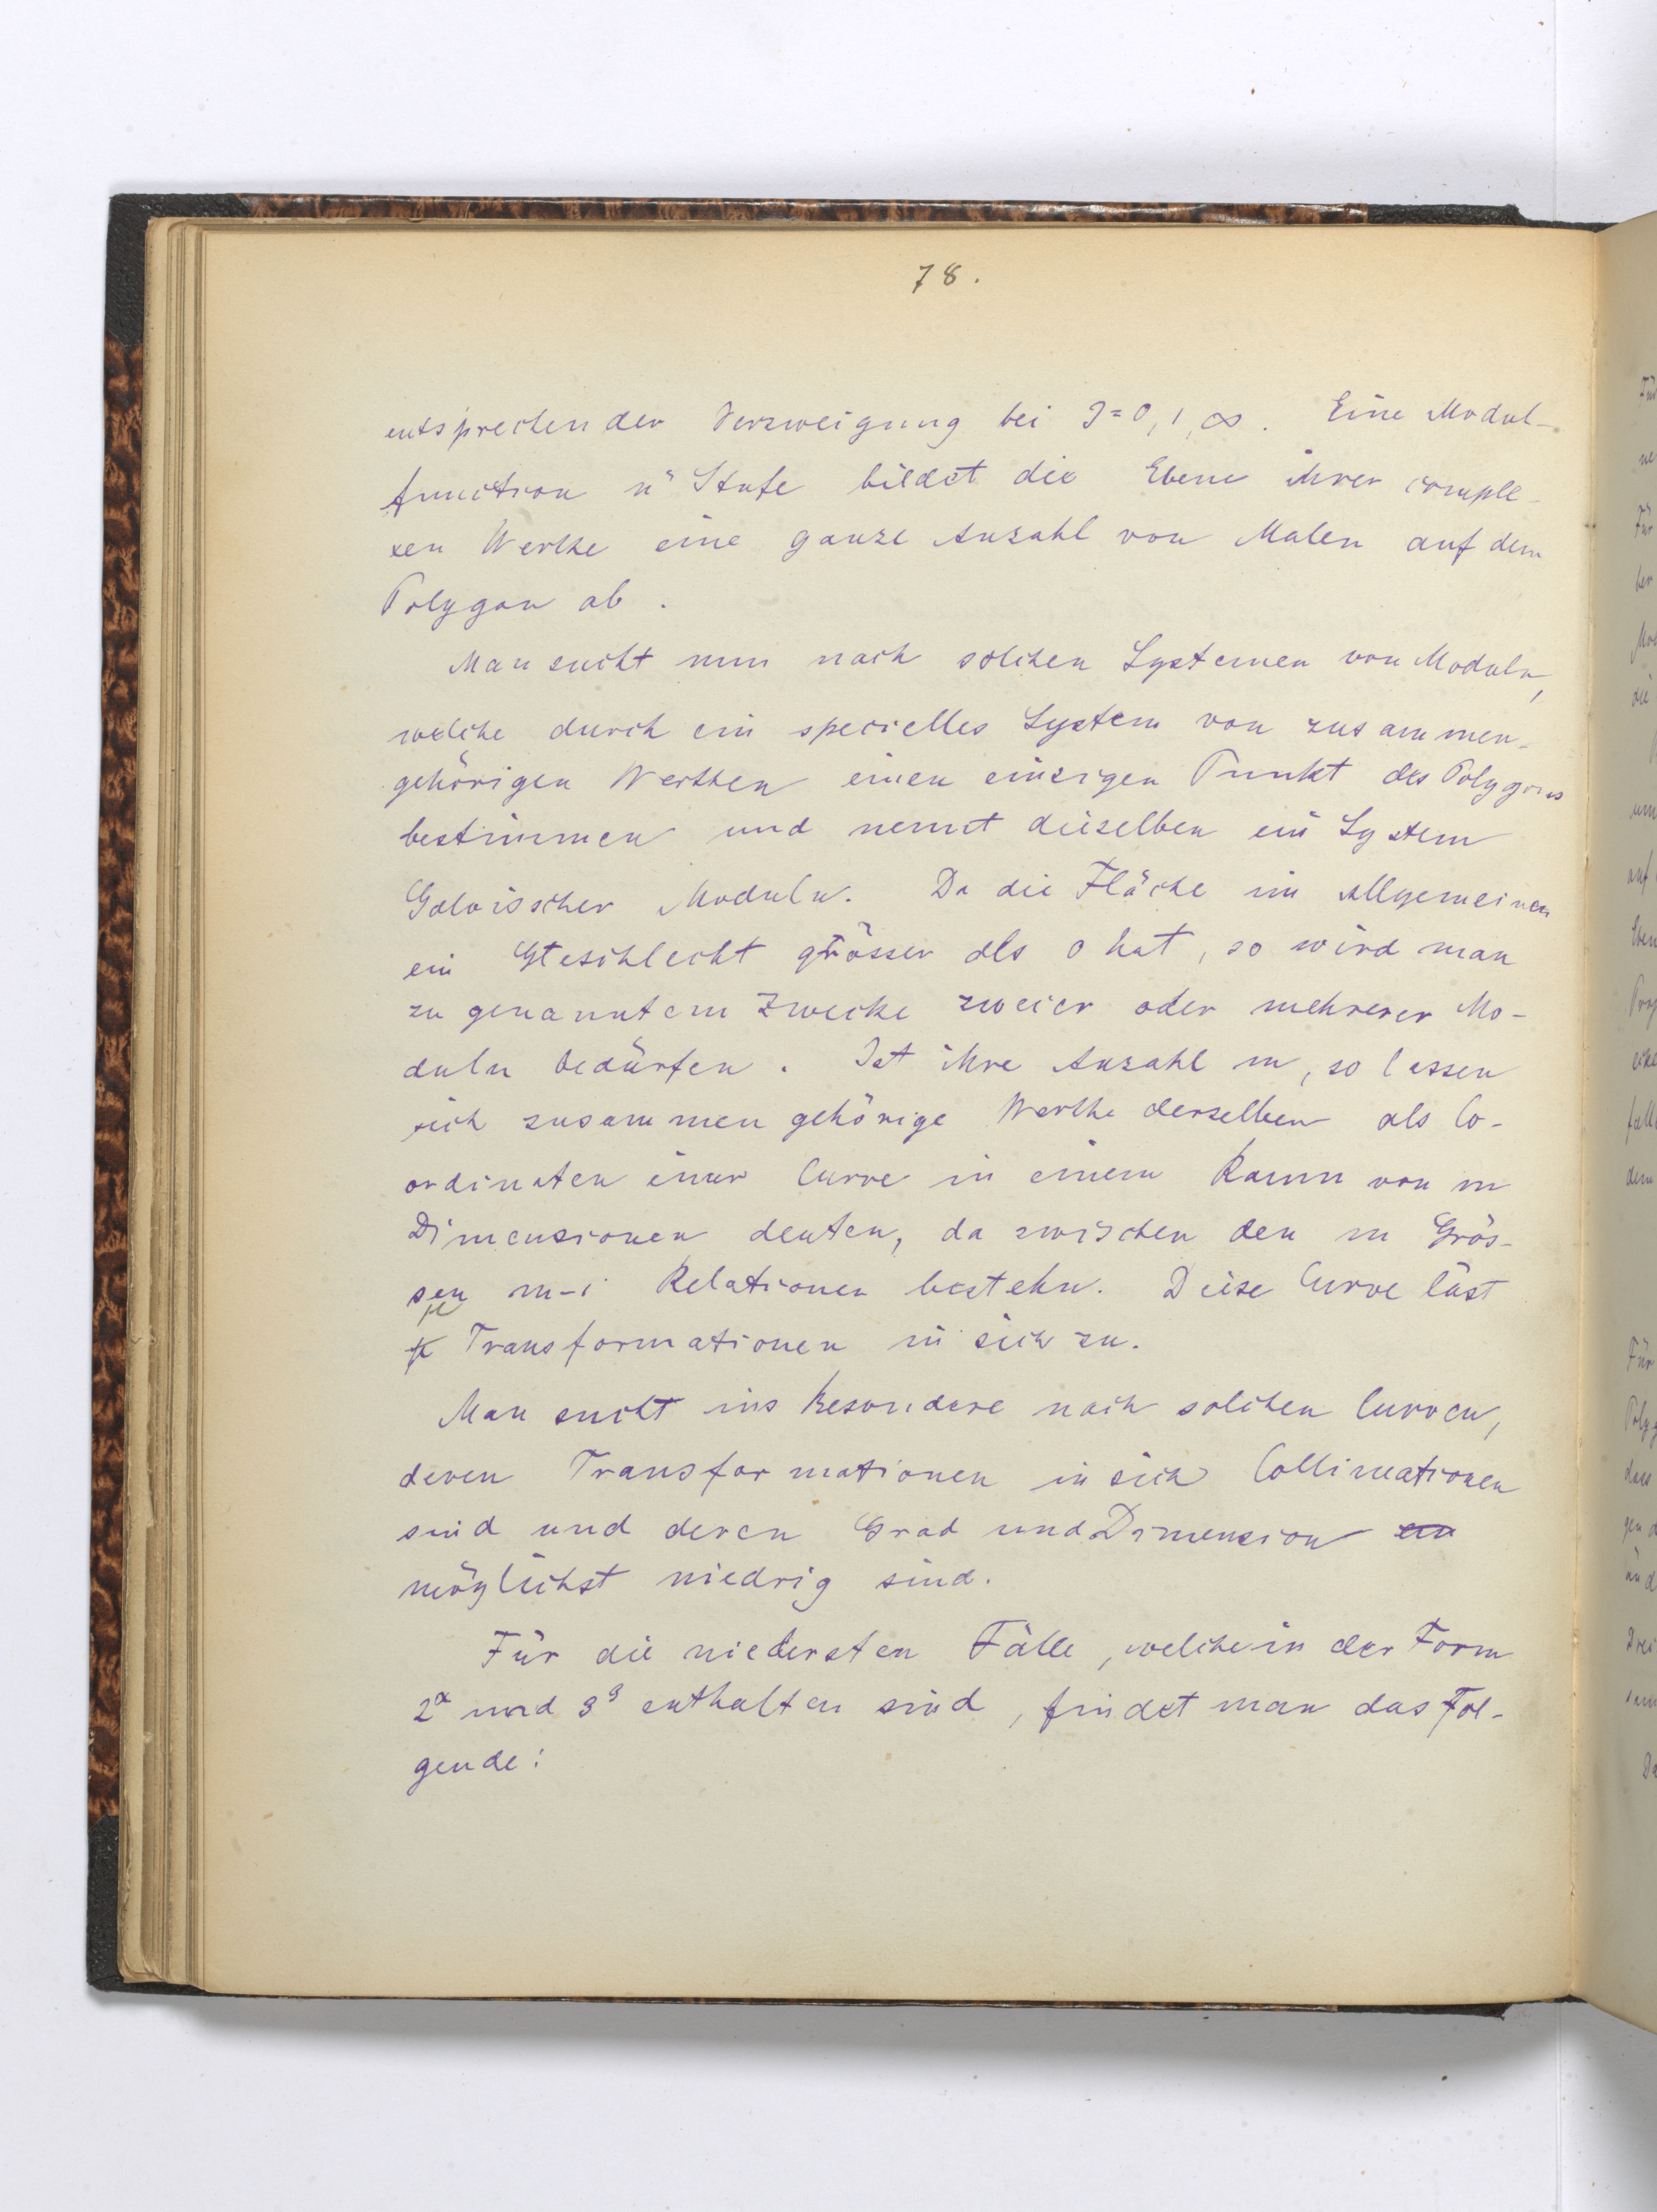 78.
entsprechender Verzweigung bei J=0,1,∞. Eine Modul-
function n<sup>r</sup> Stufe bildet die Ebene ihrer comple-
xen Werthe eine ganze Anzahl von Malen auf dem
Polygon ab.
Man sucht nun nach solchen Systemen von Moduln,
welche durch ein specielles System von zusammen-
gehörigen Werthen einen einzigen Punkt des Polygons
bestimmen und nennt dieselben ein System
Galoisscher Moduln. Da die Fläche im Allgemeinen
ein Geschlecht grösser als 0 hat, so wird man
zu genanntem Zwecke zweier oder mehrerer Mo-
duln bedürfen. Ist ihre Anzahl m, so lassen
sich zusammen gehörige Werthe derselben als Co-
ordinaten einer Curve in einem Raum von m
Dimensionen deuten, da zwischen den m Grös-
sen m-1 Relationen bestehn. Diese Curve läst
μ Transformationen in sich zu.
Man sucht ins Besondere nach solchen Curven,
deren Transformationen in sich Collineationen
sind und deren Grad und Dimension
möglichst niedrig sind.
Für die niedersten Fälle, welche in der Form
2<sup>α</sup> und 3<sup>β</sup> enthalten sind, findet man das Fol-
gende: